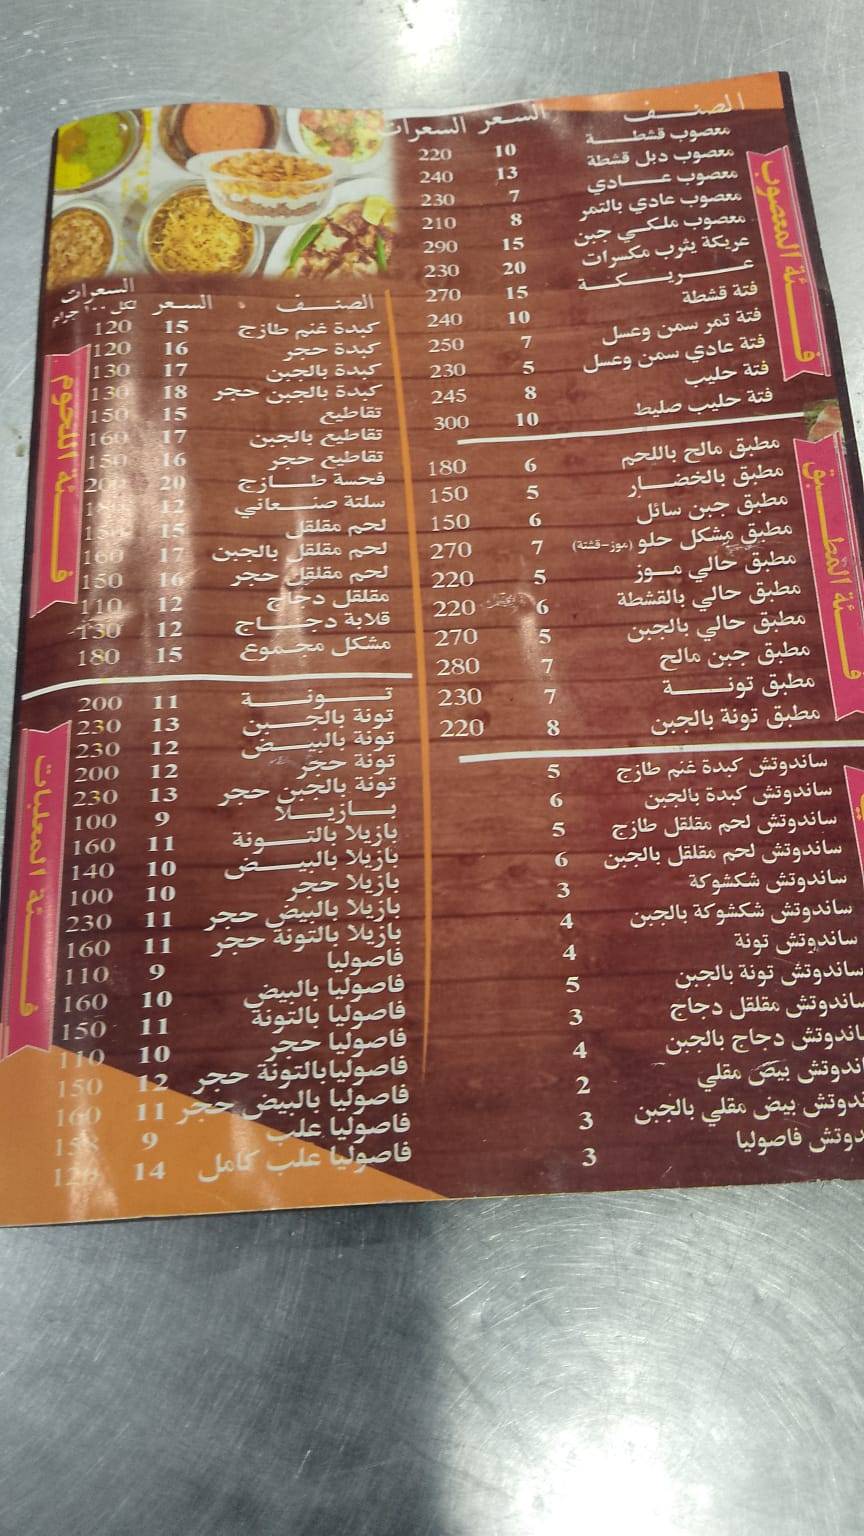 الصنف السعر السعرات
فئة المعصوب
معصوب قشطة 10 220
معصوب دبل قشطة 13 240
معصوب عادي 7 230
معصوب عادي بالتمر 8 210
معصوب ملكي جبن 15 290
عريكة يثرب مكسرات 20 230
عريكة 15 270
فتة قشطة 10 240
فتة تمر سمن وعسل 7 250
فتة عادي سمن وعسل 5 230
فتة حليب 8 245
فتة حليب صليط 10 300
فئة المطبق
مطبق مالح باللحم 6 180
مطبق بالخضار 5 150
مطبق جبن سائل 6 150
مطبق مشكل حلو (موز-قشتة) 7 270
مطبق حالي موز 5 220
مطبق حالي بالقشطة 6 220
مطبق حالي بالجبن 5 270
مطبق جبن مالح 7 280
مطبق تونة 7 230
مطبق تونة بالجبن 8 220
ساندوتش كبدة غنم طازج 5
ساندوتش كبدة بالجبن 6
ساندوتش لحم مقلقل طازج 5
ساندوتش لحم مقلقل بالجبن 6
ساندوتش شكشوكة 3
ساندوتش شكشوكة بالجبن 4
ساندوتش تونة 4
ساندوتش تونة بالجبن 5
ساندوتش مقلقل دجاج 3
ساندوتش دجاج بالجبن 4
اندوتش بيض مقلي 2
ندوتش بيض مقلي بالجبن 3
دوتش فاصوليا 3
الصنف السعر السعرات
لكل ١٠٠ جرام
فئة اللحوم
كبدة غنم طازج 15 120
كبدة حجر 16 120
كبدة بالجبن 17 130
كبدة بالجبن حجر 18 130
تقاطيع 15 150
تقاطيع بالجبن 17 160
تقاطيع حجر 16 150
فحسة طازج 20 200
سلتة صنعاني 12
لحم مقلقل 15
لحم مقلقل بالجبن 17 160
لحم مقلقل حجر 16 150
مقلقل دجاج 12 110
قلابة دجاج 12 130
مشكل مجموع 15 180
فئة المعلبات
تونة 11 200
تونة بالجبن 13 230
تونة بالبيض 12 230
تونة حجر 12 200
تونة بالجبن حجر 13 230
بازيلا 9 100
بازيلا بالتونة 11 160
بازيلا بالبيض 10 140
بازيلا حجر 10 100
بازيلا بالبيض حجر 11 230
بازيلا بالتونة حجر 11 160
فاصوليا 9 110
فاصوليا بالبيض 10 160
فاصوليا بالتونة 11 150
فاصوليا حجر 10 110
فاصوليابالتونة حجر 12 150
فاصوليا بالبيض حجر 11 160
فاصوليا علب 9
فاصوليا علب كامل 14